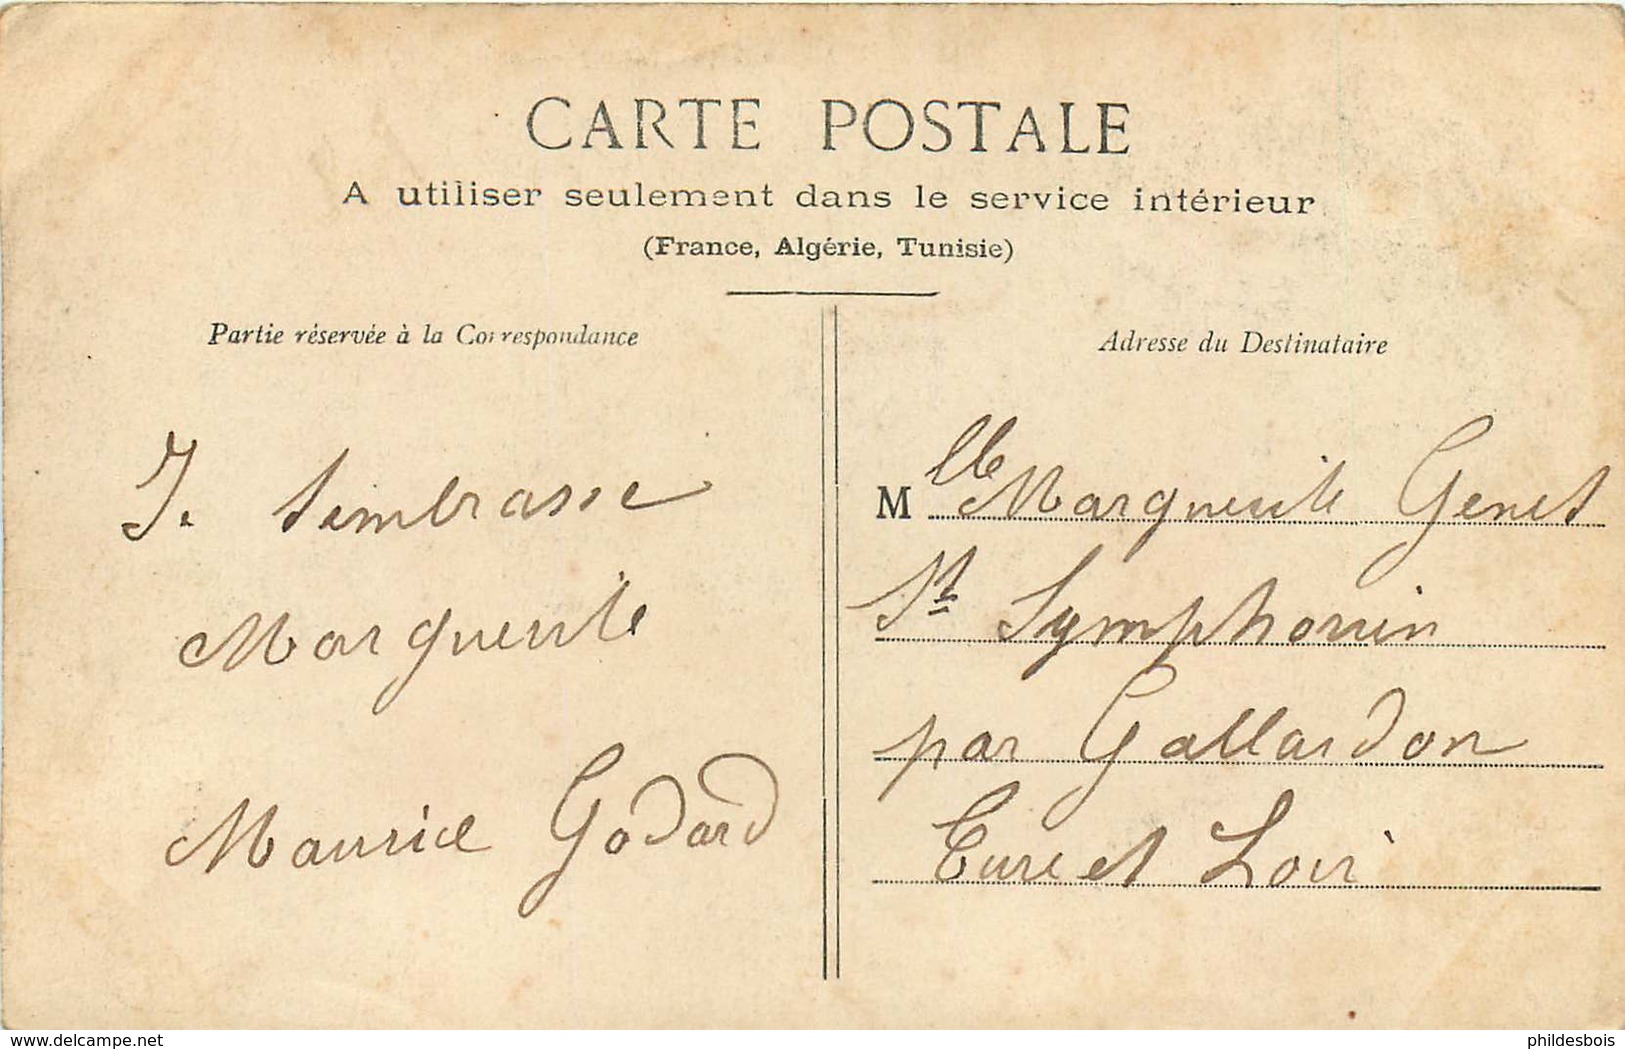 CARTE POSTALE
A utiliser seulement dans le service intérieur
(France, Algérie, Tunisie)
Partie réservée à la Correspondance
Je t'embrasse
Marguerite
Maurice Godard
Adresse du Destinataire
Mlle Marguerite Genet
St Symphorien
par Gallardon
Eure et Loir
delcampe.net
phildesbois